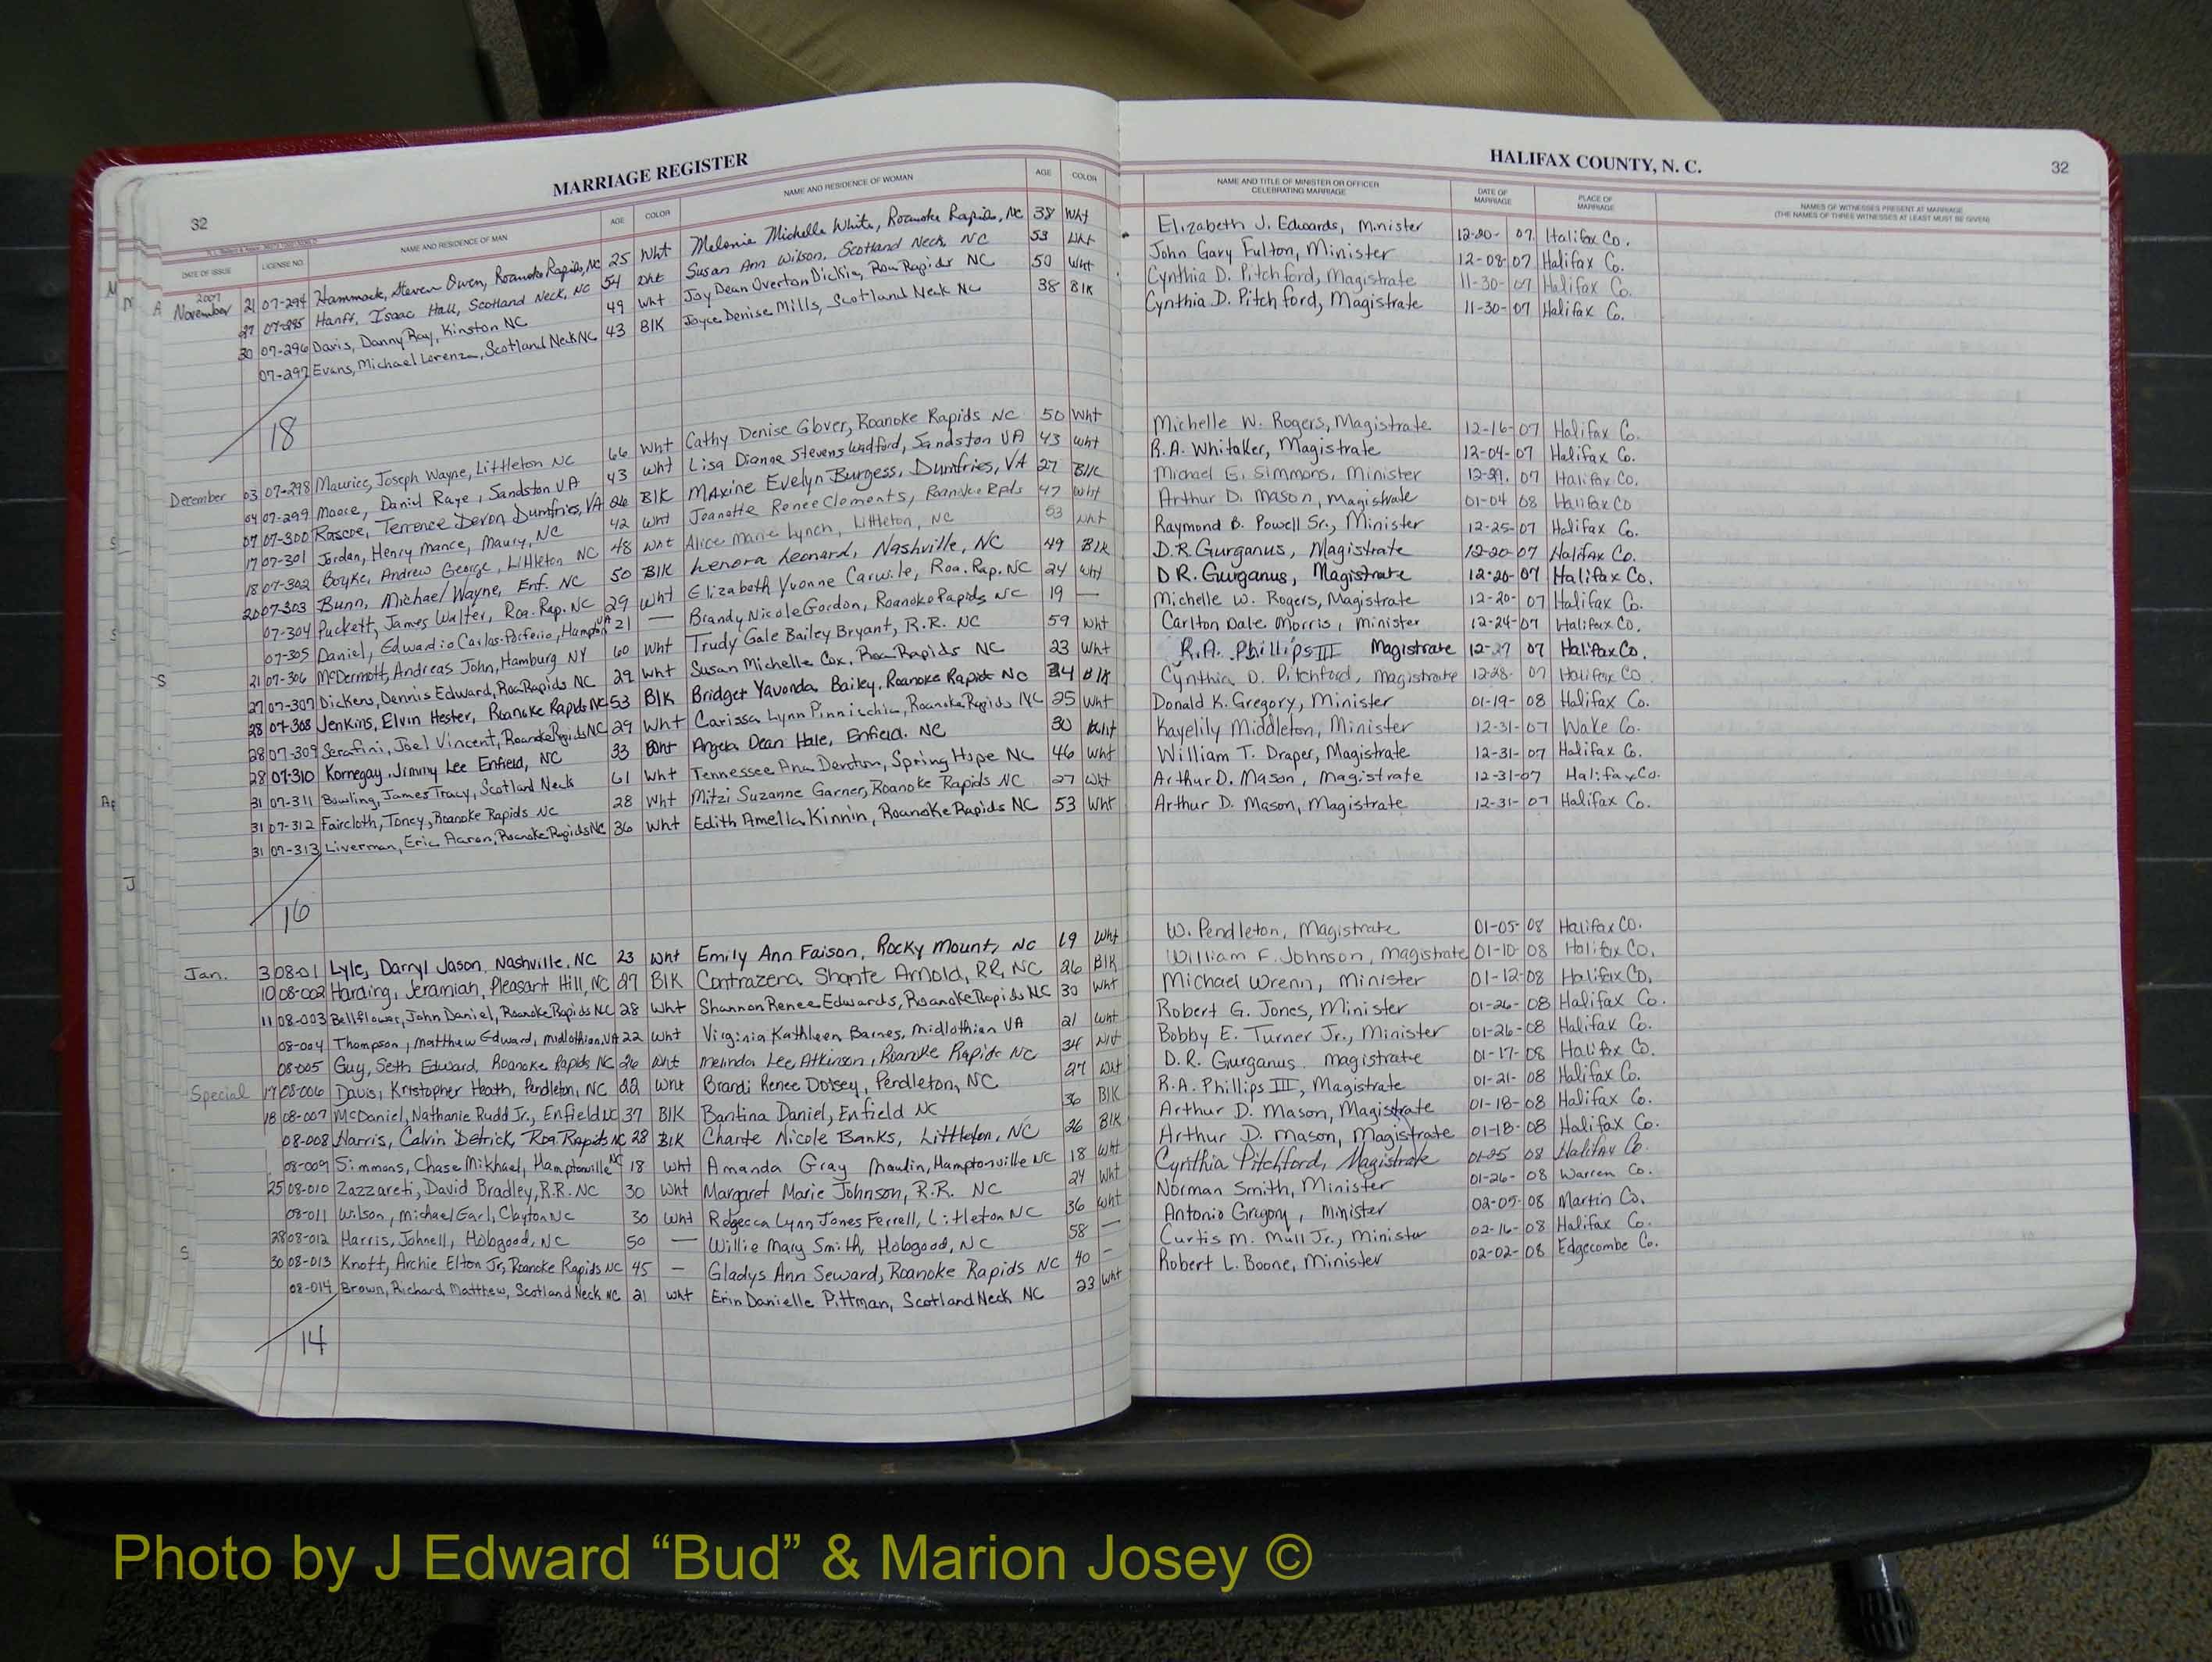 MARRIAGE REGISTER
32
DATE OF ISSUE LICENSE NO. NAME AND RESIDENCE OF MAN AGE COLOR NAME AND RESIDENCE OF WOMAN AGE COLOR
2007
November 21 07-294 Hammack, Steven Owen, Roanoke Rapids, NC 25 Wht Melonie Michelle White, Roanoke Rapids, NC 38 Wht
27 07-295 Hanff, Isaac Hall, Scotland Neck, NC 54 Wht Susan Ann Wilson, Scotland Neck, NC 53 Wht
30 07-296 Davis, Danny Ray, Kinston NC 49 Wht Joy Dean Overton Dickin, Roa Rapids NC 50 Wht
07-297 Evans, Michael Lorenza, Scotland Neck NC 43 Blk Joyce Denise Mills, Scotland Neck NC 38 Blk
18
December 03 07-298 Maurice, Joseph Wayne, Littleton NC 66 Wht Cathy Denise Glover, Roanoke Rapids NC 50 Wht
04 07-299 Moore, Daniel Raye, Sandston VA 43 Wht Lisa Dianne Stevens Wadford, Sandston VA 43 Wht
07 07-300 Rascoe, Terrence Devon Dumfries, VA 26 Blk Maxine Evelyn Burgess, Dumfries, VA 27 Blk
17 07-301 Jordan, Henry Mance, Maury, NC 42 Wht Jeanette Renee Clements, Roanoke Rpds 47 Wht
18 07-302 Boyke, Andrew George, Littleton NC 48 Wht Alice Marie Lynch, Littleton, NC 53 Wht
20 07-303 Bunn, Michael Wayne, Enf. NC 50 Blk Lenora Leonard, Nashville, NC 49 Blk
07-304 Puckett, James Walter, Roa. Rap. NC 29 Wht Elizabeth Yvonne Carwile, Roa. Rap. NC 24 Wht
07-305 Daniel, Edwardio Carlos-Porferio, Hampton VA 21 — Brandy Nicole Gordon, Roanoke Rapids NC 19 —
21 07-306 McDermott, Andreas John, Hamburg NY 60 Wht Trudy Gale Bailey Bryant, R.R. NC 59 Wht
27 07-307 Dickens, Dennis Edward, Roa Rapids NC 29 Wht Susan Michelle Cox, Roa Rapids NC 23 Wht
28 07-308 Jenkins, Elvin Hester, Roanoke Rapids NC 53 Blk Bridget Yavonda Bailey, Roanoke Rapids NC 34 Blk
28 07-309 Serafini, Joel Vincent, Roanoke Rapids NC 29 Wht Carissa Lynn Pinnischia, Roanoke Rapids NC 25 Wht
28 07-310 Kornegay, Jimmy Lee Enfield, NC 33 Wht Angela Dean Hale, Enfield, NC 30 Wht
31 07-311 Bowling, James Tracy, Scotland Neck 61 Wht Tennessee Ann Denton, Spring Hope NC 46 Wht
31 07-312 Faircloth, Toney, Roanoke Rapids NC 28 Wht Mitzi Suzanne Garner, Roanoke Rapids NC 27 Wht
31 07-313 Liverman, Eric Aaron, Roanoke Rapids NC 36 Wht Edith Amella Kinnin, Roanoke Rapids NC 53 Wht
16
Jan. 3 08-01 Lyle, Darryl Jason, Nashville, NC 23 Wht Emily Ann Faison, Rocky Mount, NC 19 Wht
10 08-002 Harding, Jeramiah, Pleasant Hill, NC 27 Blk Contrazena Shante Arnold, RR, NC 26 Blk
11 08-003 Bellflower, John Daniel, Roanoke Rapids NC 28 Wht Shannon Renee Edwards, Roanoke Rapids NC 30 Wht
08-004 Thompson, Matthew Edward, Midlothian, VA 22 Wht Virginia Kathleen Barnes, Midlothian VA 21 Wht
08-005 Guy, Seth Edward, Roanoke Rapids NC 26 Wht Melinda Lee Atkinson, Roanoke Rapids NC 34
Special 17 08-006 Davis, Kristopher Heath, Pendleton, NC 22 Wht Brandi Renee Dorsey, Pendleton, NC 27 Wht
18 08-007 McDaniel, Nathanie Rudd Jr., Enfield NC 37 Blk Bantina Daniel, Enfield NC 36 Blk
08-008 Harris, Calvin Detrick, Roa. Rapids NC 28 Blk Chante Nicole Banks, Littleton, NC 26 Blk
08-009 Simmons, Chase Mikhael, Hamptonville NC 18 Wht Amanda Gray Maulin, Hamptonville NC 18 Wht
25 08-010 Zazzareti, David Bradley, R.R. NC 30 Wht Margaret Marie Johnson, R.R. NC 24 Wht
08-011 Wilson, Michael Earl, Clayton NC 30 Wht Rebecca Lynn Jones Ferrell, Littleton NC 36 Wht
28 08-012 Harris, Johnell, Hobgood, NC 50 — Willie Mary Smith, Hobgood, NC 58 —
30 08-013 Knott, Archie Elton Jr, Roanoke Rapids NC 45 — Gladys Ann Seward, Roanoke Rapids NC 40 —
08-014 Brown, Richard Matthew, Scotland Neck NC 21 Wht Erin Danielle Pittman, Scotland Neck NC 23 Wht
14
HALIFAX COUNTY, N. C.
32
NAME AND TITLE OF MINISTER OR OFFICER CELEBRATING MARRIAGE DATE OF MARRIAGE PLACE OF MARRIAGE NAMES OF WITNESSES PRESENT AT MARRIAGE
(THE NAMES OF THREE WITNESSES AT LEAST MUST BE GIVEN)
Elizabeth J. Edwards, Minister 12-20-07 Halifax Co.
John Gary Fulton, Minister 12-08-07 Halifax Co.
Cynthia D. Pitchford, Magistrate 11-30-07 Halifax Co.
Cynthia D. Pitchford, Magistrate 11-30-07 Halifax Co.
Michelle W. Rogers, Magistrate 12-16-07 Halifax Co.
R.A. Whitaker, Magistrate 12-04-07 Halifax Co.
Michael E. Simmons, Minister 12-29-07 Halifax Co.
Arthur D. Mason, Magistrate 01-04 08 Halifax Co
Raymond B. Powell Sr., Minister 12-25-07 Halifax Co.
D.R. Gurganus, Magistrate 12-20-07 Halifax Co.
D R. Gurganus, Magistrate 12-20-07 Halifax Co.
Michelle W. Rogers, Magistrate 12-20-07 Halifax Co.
Carlton Dale Morris, Minister 12-24-07 Halifax Co.
R.A. Phillips III Magistrate 12-27 07 Halifax Co.
Cynthia D. Pitchford, Magistrate 12-28-07 Halifax Co
Donald K. Gregory, Minister 01-19-08 Halifax Co.
Kayelily Middleton, Minister 12-31-07 Wake Co.
William T. Draper, Magistrate 12-31-07 Halifax Co.
Arthur D. Mason, Magistrate 12-31-07 Halifax Co.
Arthur D. Mason, Magistrate 12-31-07 Halifax Co.
W. Pendleton, Magistrate 01-05-08 Halifax Co.
William F. Johnson, Magistrate 01-10-08 Halifax Co.
Michael Wrenn, Minister 01-12-08 Halifax Co.
Robert G. Jones, Minister 01-26-08 Halifax Co.
Bobby E. Turner Jr., Minister 01-26-08 Halifax Co.
D.R. Gurganus, Magistrate 01-17-08 Halifax Co.
R.A. Phillips III, Magistrate 01-21-08 Halifax Co.
Arthur D. Mason, Magistrate 01-18-08 Halifax Co.
Arthur D. Mason, Magistrate 01-18-08 Halifax Co.
Cynthia Pitchford, Magistrate 01-25 08 Halifax Co
Norman Smith, Minister 01-26-08 Warren Co.
Antonio Gregory, Minister 02-05-08 Martin Co.
Curtis M. Mull Jr., Minister 02-16-08 Halifax Co.
Robert L. Boone, Minister 02-02-08 Edgecombe Co.
Photo by J Edward “Bud” & Marion Josey ©